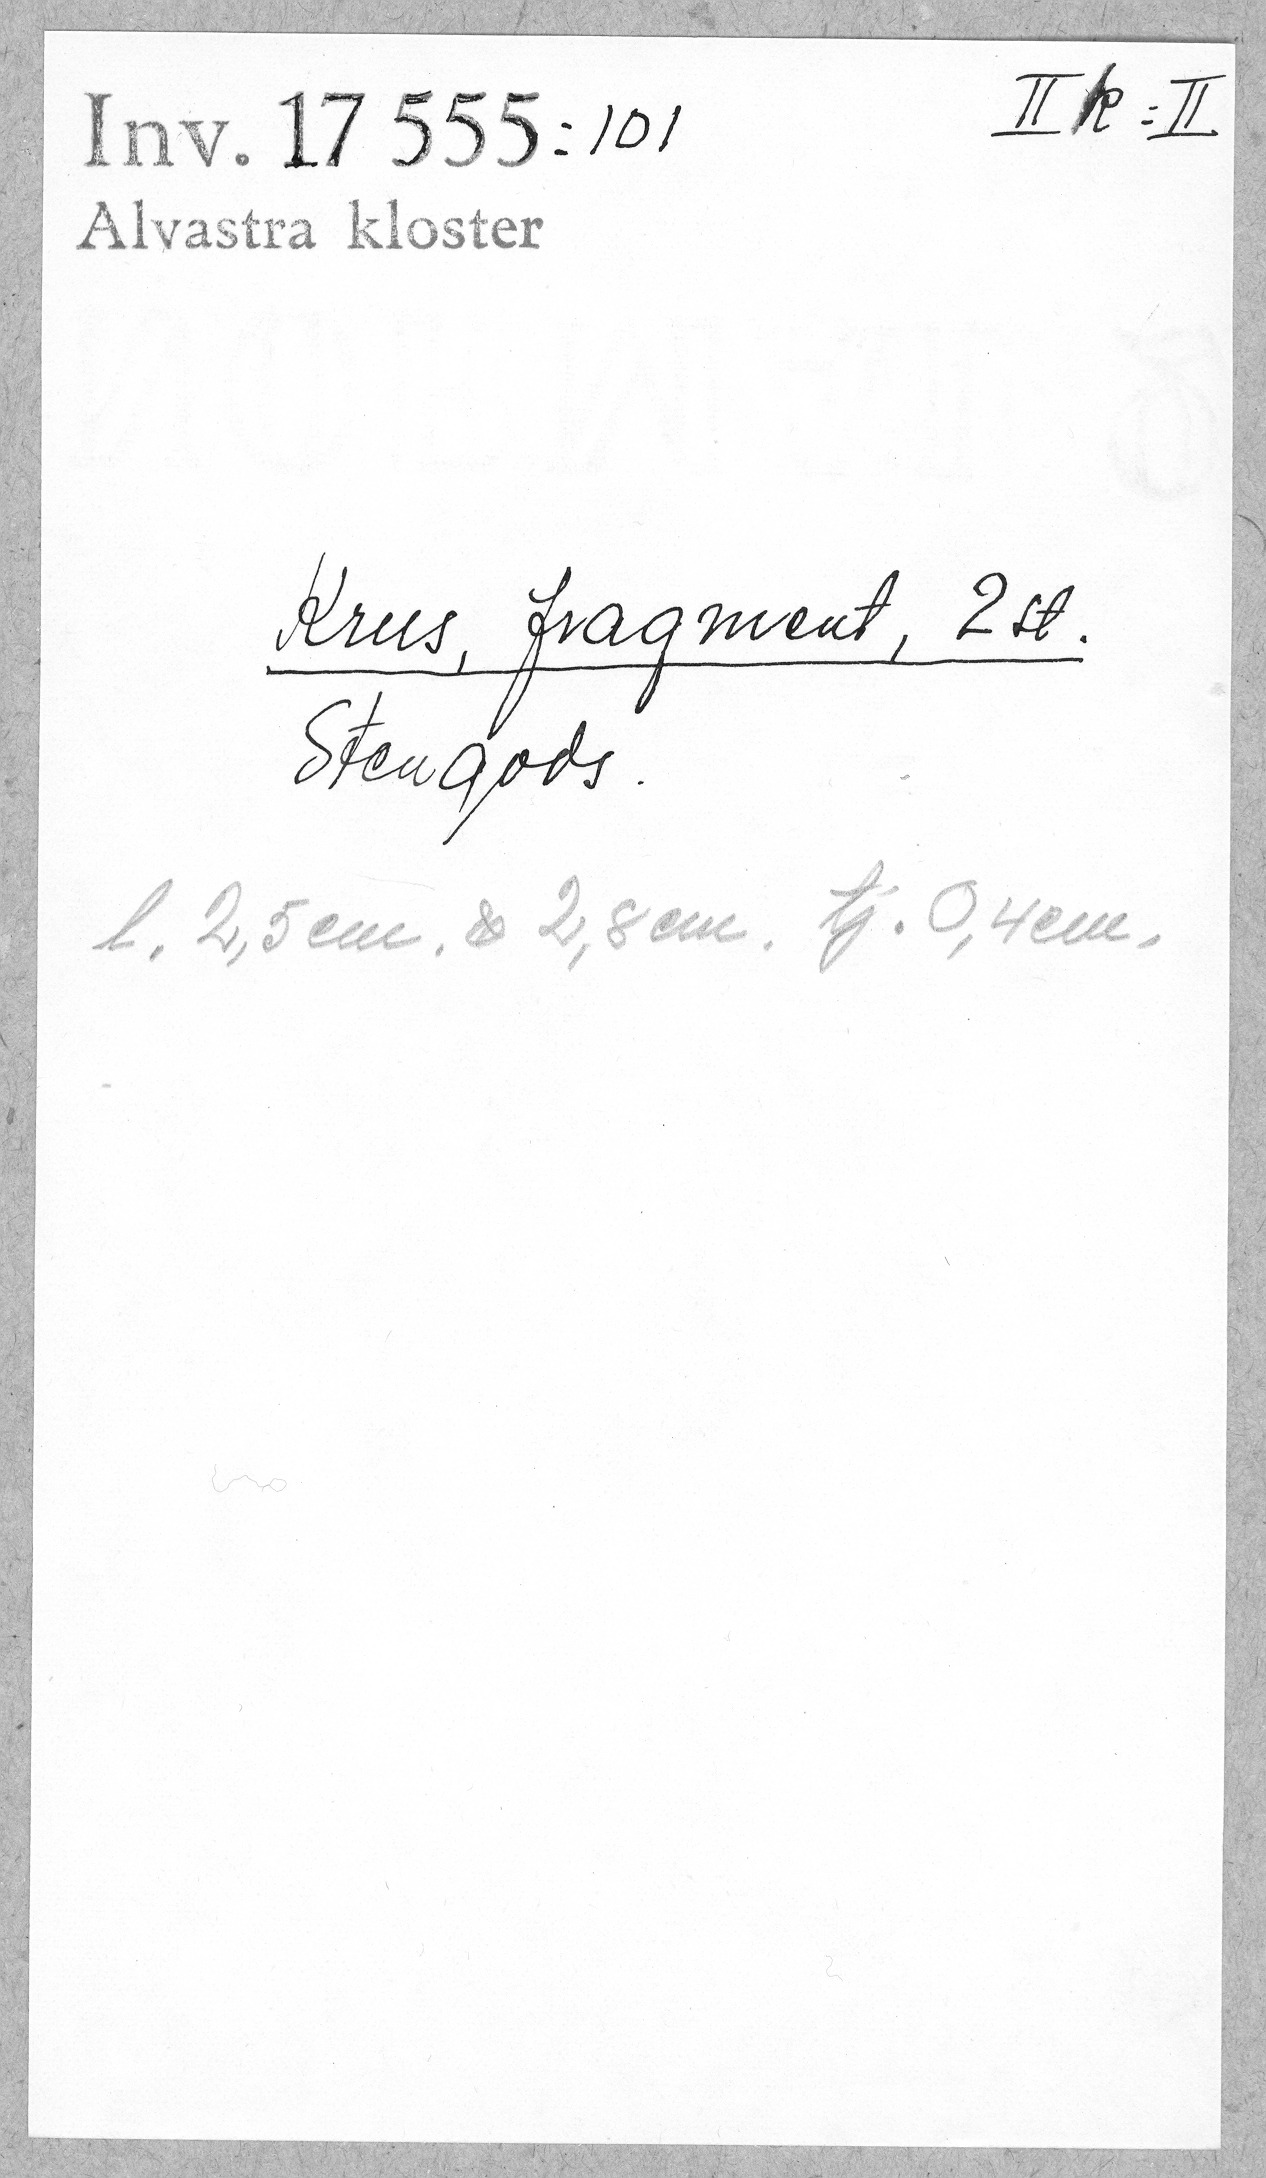 Inv. 17 555:101
II k:II
Alvastra kloster
Krus, fragment, 2 st.
Stengods.
l. 2,5 cm. & 2,8 cm. tj. 0,4 cm.